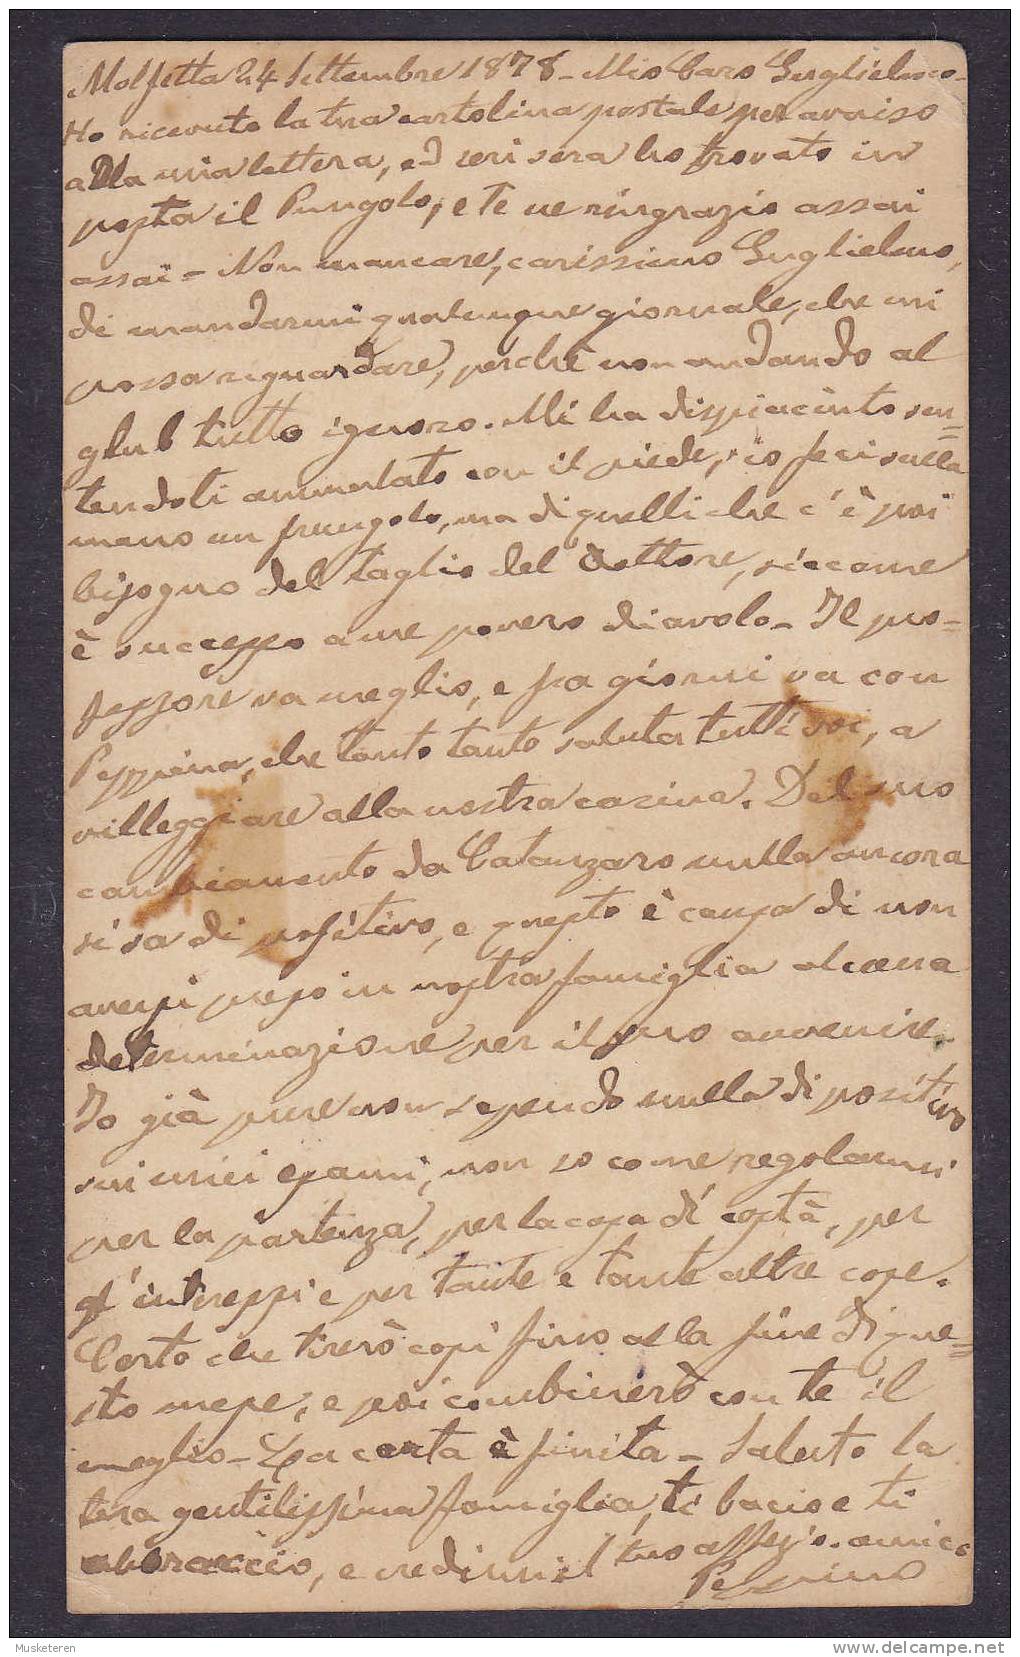 Molfetta 24 Settembre 1878 - Mio Caro Guglielmo -
Ho ricevuto la tua cartolina postale per avviso
alla mia lettera, ed ieri sera ho trovato in
posta il Pungolo, e te ne ringrazio assai
assai - Non mancare, carissimo Guglielmo,
di mandarmi qualunque giornale, che mi
possa riguardare, perchè non andando al
club tutto ignoro. Mi ha dispiaciuto sen=
tendoti ammalato con il piede, io feci sulla
mano un frungolo, ma di quelli che c'è poi
bisogno del taglio del dottore, siccome
è successo a me povero diavolo - Il pro-
fessore va meglio, e fra giorni va con
Peppina, che tanto tanto saluta tutti voi, a
villeggiare alla nostra casina. Del suo
cambiamento da Catanzaro nulla ancora
si sa di positivo, e questo è causa di non
aversi preso in nostra famiglia alcuna
determinazione per il suo avvenire.
Io già pure non sapendo nulla di positivo
sui miei esami, non so come regolarmi
per la partenza, per la casa di costà, per
gl'interessi e per tante e tante altre cose.
Certo che tirerò così fino alla fine di que=
sto mese, e poi combinerò con te il
meglio - La carta è finita - Saluto la
tua gentilissima famiglia, ti bacio e ti
abbraccio, e credimi il tuo affez.o amico
Peppino
Musketeren
www.delcampe.net